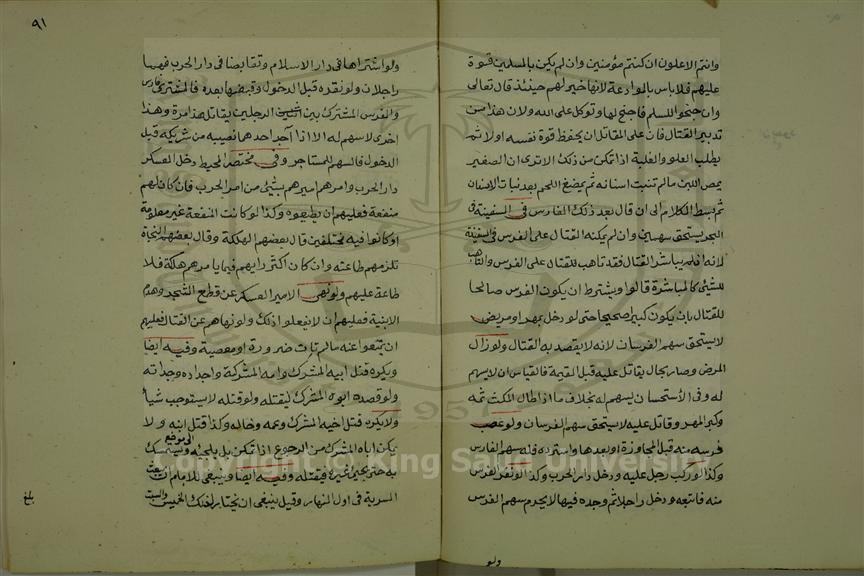 وانتم الاعلون ان كنتم مؤمنين وان لم يكن بالمسلمين قوة
عليهم فلا باس بالموادعة لانها خير لهم حينئذ قال تعالى
وان جنحوا للسلم فاجنح لها وتوكل على الله ولان هذا من
تدبير القتال فان على المقاتل ان يحفظ قوة نفسه اولا ثم
يطلب العلو والغلبة اذا تمكن من ذلك الا ترى ان الصغير
يمص اللبن ما لم تنبت اسنانه ثم يمضغ اللحم بعد نبات الاسنان
ثم بسط الكلام الى ان قال بعد ذلك الفارس في السفينة في
البحر يستحق سهمين وان لم يمكنه القتال على الفرس في السفينة
لانه ان لم يباشر القتال فقد تاهب للقتال على الفرس والتاهب
للشئ كالمباشرة قالوا ويشترط ان يكون الفرس صالحا
للقتال بان يكون كبيرا صحيحا حتى لو دخل بمهر او مريض
لا يستحق سهم الفرسان لانه لا يقصد به القتال ولو زال
المرض وصار بحال يقاتل عليه قبل القيمة فالقياس ان لا يسهم
له وفي الاستحسان يسهم له بخلاف ما اذا طال المكث ثمه
وكبر المهر وقاتل عليه لا يستحق سهم الفرسان ولو غصب
فرسه منه قبل المجاوزة او بعدها واسترده فله سهم الفارس
وكذا لو ركب رجل عليه ودخل دار الحرب وكذا لو نفر الفرس
منه فاتبعه ودخل راجلا ثم وجده فيها لا يحرم سهم الفرس
ولو
٩١
ولو اشتراها في دار الاسلام وتقابضا في دار الحرب فهما
راجلان ولو نقده قبل الدخول وقبضها بعده فالمشترى فارس
والفرس المشترك بين الرجلين يقاتل هذا مرة وهذا
اخرى لا سهم له الا اذا آجر احدهما نصيبه من شريكه قبل
الدخول فالسهم للمستاجر وفي مختصر المحيط دخل العسكر
دار الحرب وامرهم اميرهم بشيئ من امر الحرب فان كان لهم
منفعة فعليهم ان يطيعوه وكذا لو كانت المنفعة غير معلومة
او كانوا فيه مختلفين قال بعضهم الهلكة وقال بعضهم النجاة
تلزمهم طاعته وان كان اكثر رايهم فيما يامرهم هلكة فلا
طاعة عليهم ولو نهى الامير العسكر عن قطع الشجر وهدم
الابنية فعليهم ان لا يفعلوا ذلك ولو نهاهم عن القتال فعليهم
ان يتنعوا عنه ما لم تات ضرورة او معصية وفيه ايضا
ويكره قتل ابيه المشرك وامه المشركة واجداده وجداته
ولو قصده ابوه المشرك ليقتله ولو قتله لا يستوجب شيأ
ولا يكره قتل اخيه المشرك وعمه وخاله وكذا قتل ابنه ولا
يمكن اباه المشرك من الرجوع اذا تمكن بل يلجئه الى موضع ويستمسك
به حتى يجئ غيره فيقتله وفيه ايضا وينبغي للامام ان يبعث
السرية في اول النهار وقيل ينبغي ان يختار لذلك الخميس والسبت
بلغ
Copyright © King Saud University
1957